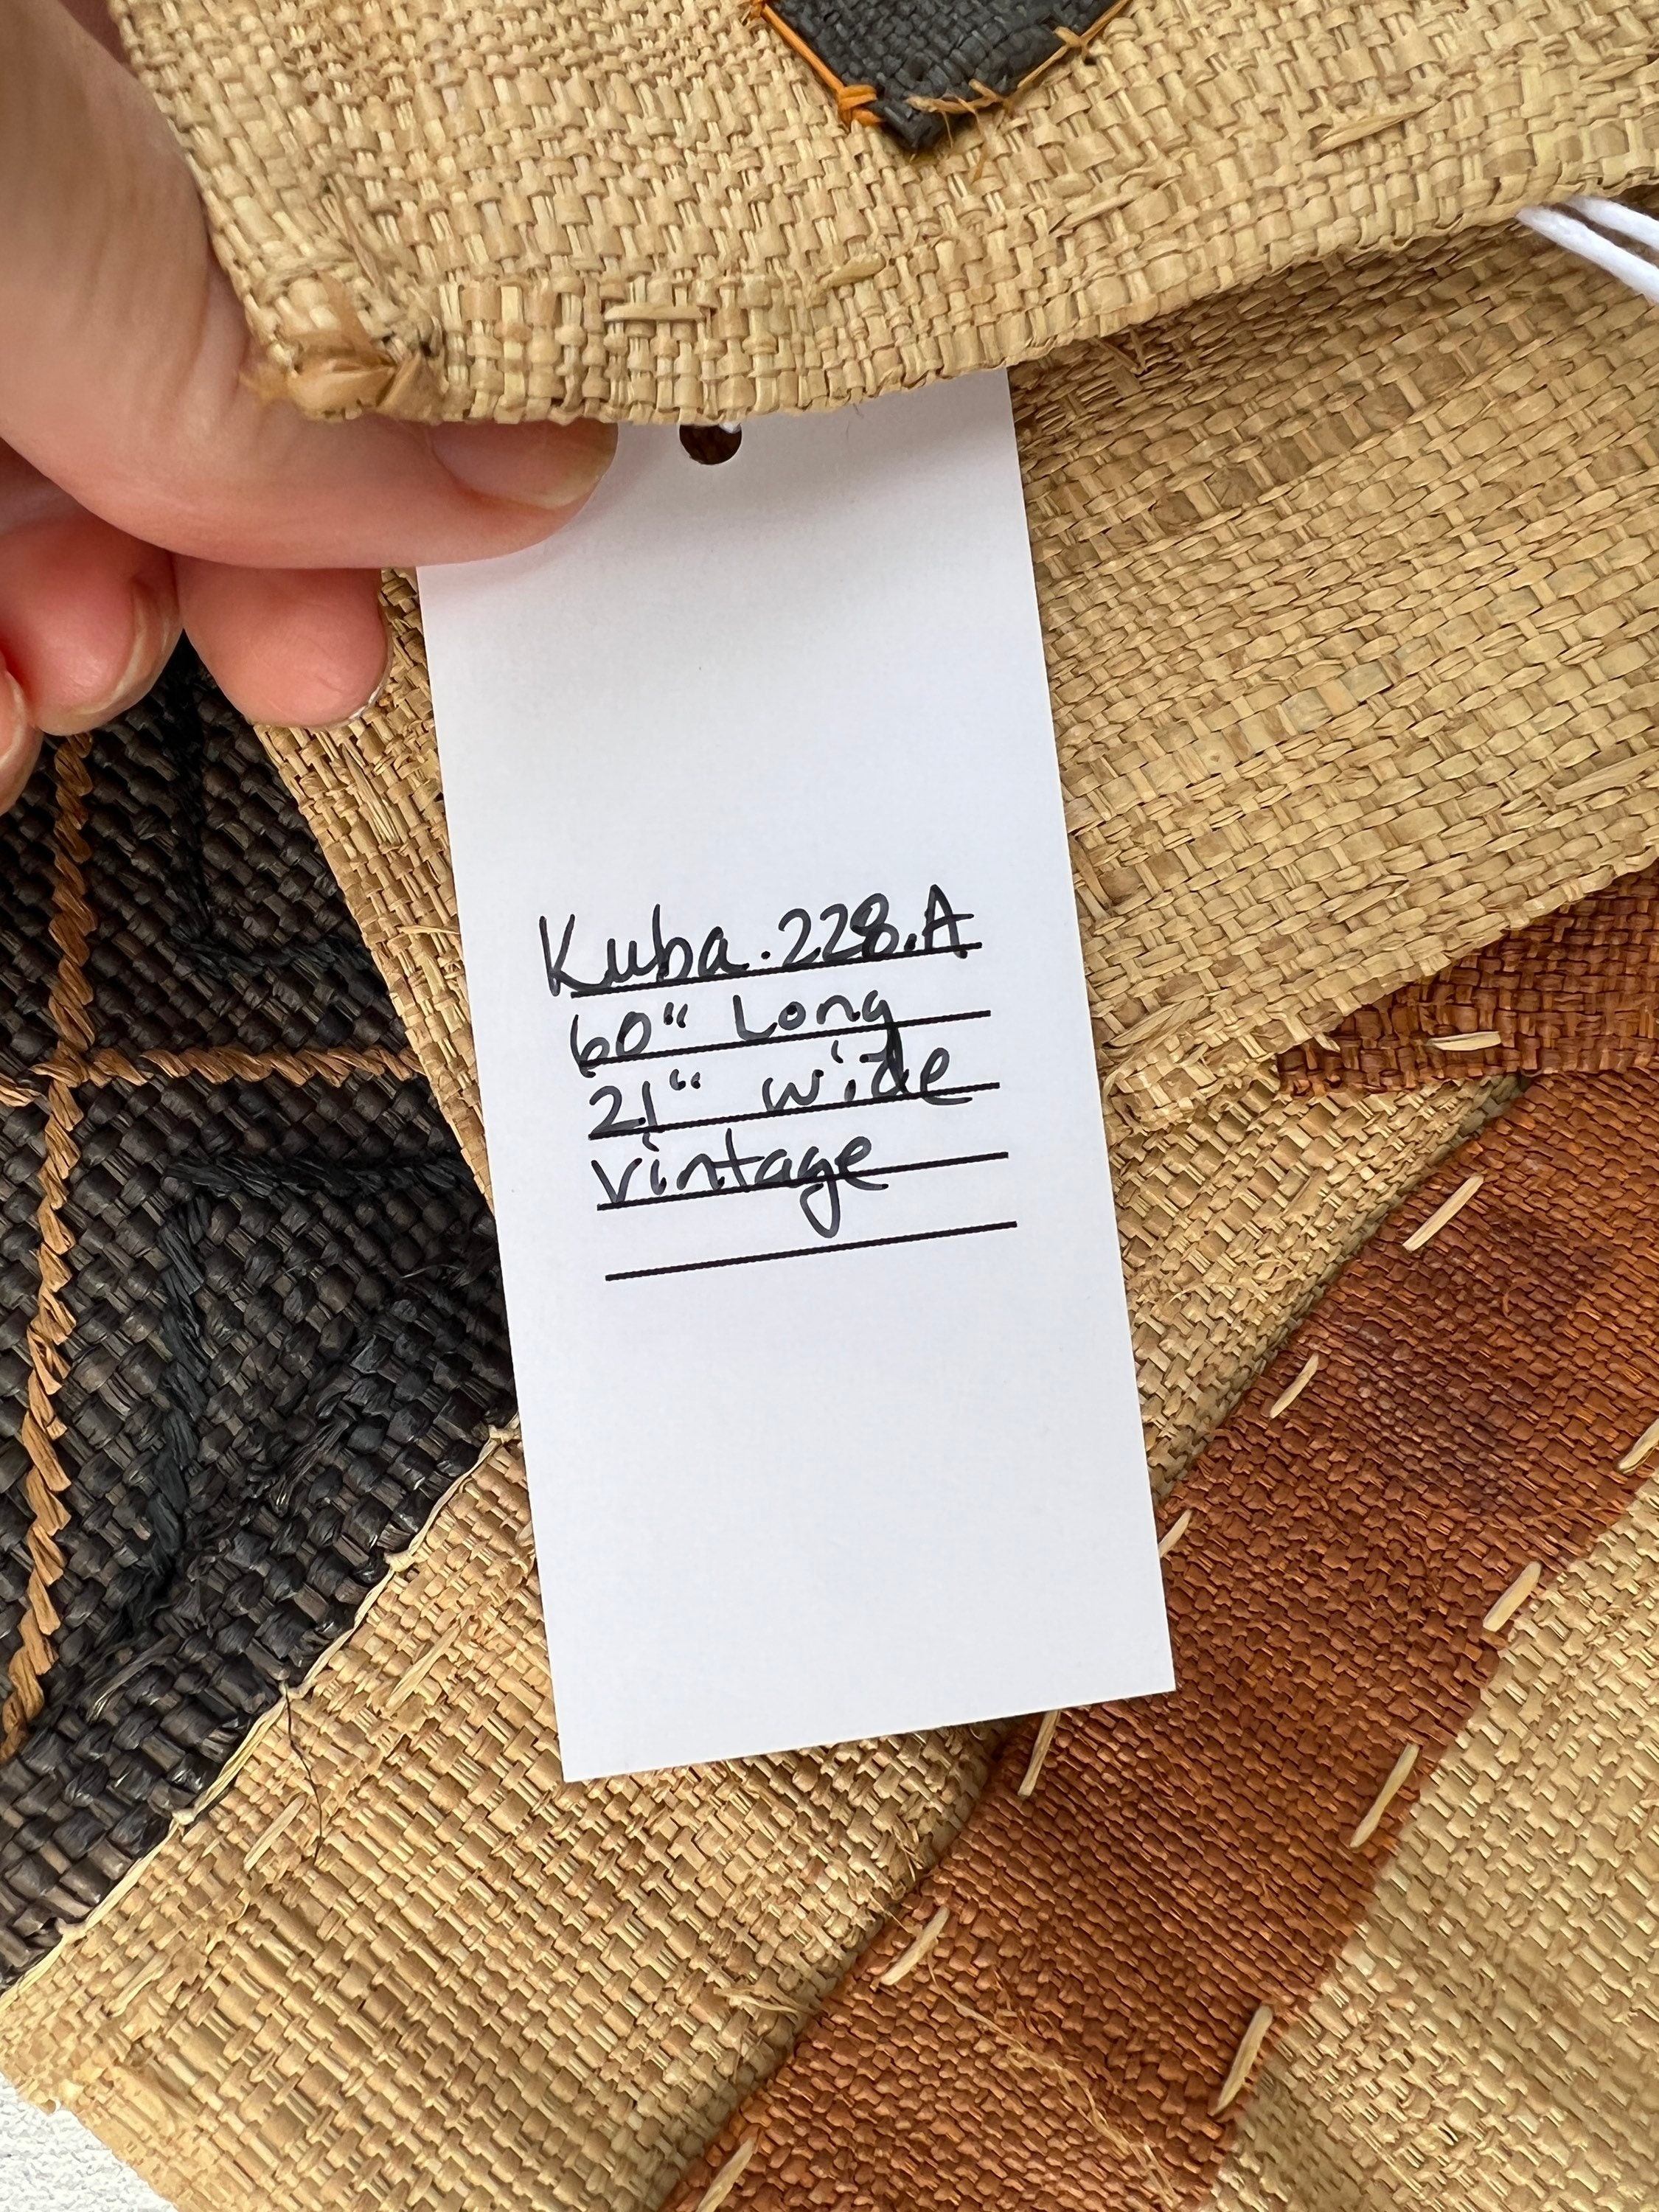 Kuba.228.A
60" Long
21" wide
vintage